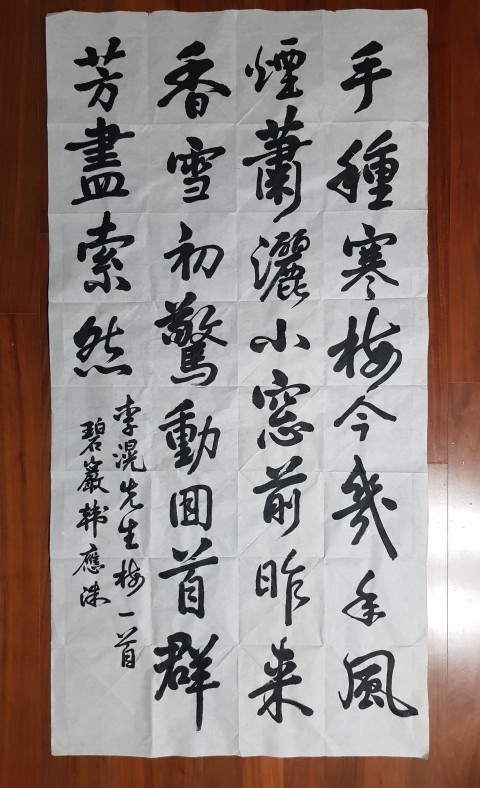 手種寒梅今幾年風
煙蕭灑小窓前昨来
香雪初驚動回首群
芳盡索然
李滉先生梅一首
碧巖韩應洙